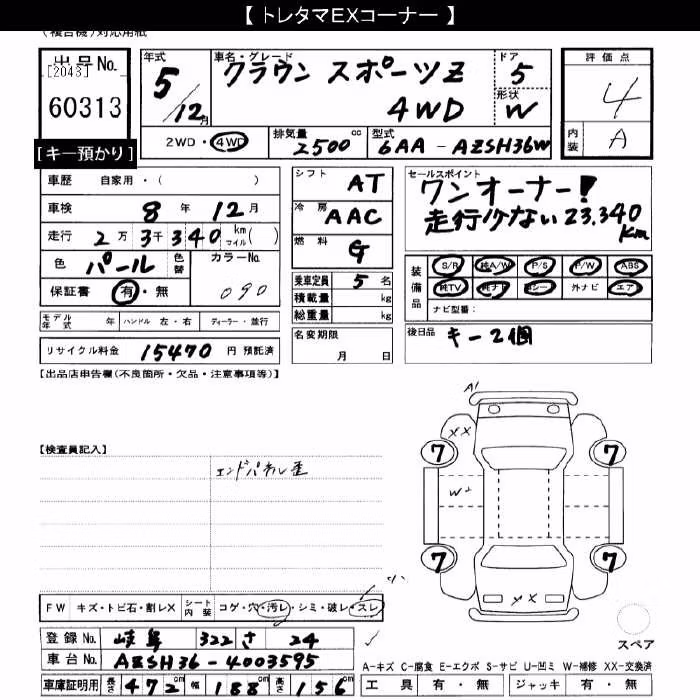 【 トレタマEXコーナー 】
(複合機)対応用紙
出品No.
[2043]
60313
[キー預かり]
年式
5/12月
車名・グレード
クラウン スポーツZ
4WD
ドア
5
形状
W
2WD・4WD
排気量
2500cc
型式
6AA - AZSH36W
評価点
4
内装
A
車歴 自家用・( )
車検 8年 12月
走行 2万 3千340 km マイル( )
色 パール 色替
カラーNo.
090
保証書 有・無
シフト AT
冷房 AAC
燃料 G
乗車定員 5名
積載量 kg
総重量 kg
名変期限
月 日
セールスポイント
ワンオーナー!
走行少ない 23,340km
装備品
S/R 純A/W P/S P/W ABS
純TV 純ナビ 革シート 外ナビ エアB
ナビ型番:
後日品 キー2個
モデル年式 年 ハンドル 左・右 ディーラー・並行
リサイクル料金 15470 円 預託済
【出品店申告欄(不良箇所・欠品・注意事項等)】
【検査員記入】
エンドパネル歪
A1
XX
7 7
W2
7 7
XX
スペア
FW キズ・トビ石・割レX シート内装 コゲ・穴・汚レ・シミ・破レ・スレ
登録No. 岐阜 322 さ 24
車台No. AZSH36-4003595
車庫証明用 長さ 472cm 幅 188cm 高さ 156cm
A-キズ C-腐食 E-エクボ S-サビ U-凹ミ W-補修 XX-交換済
工具 有・無 ジャッキ 有・無